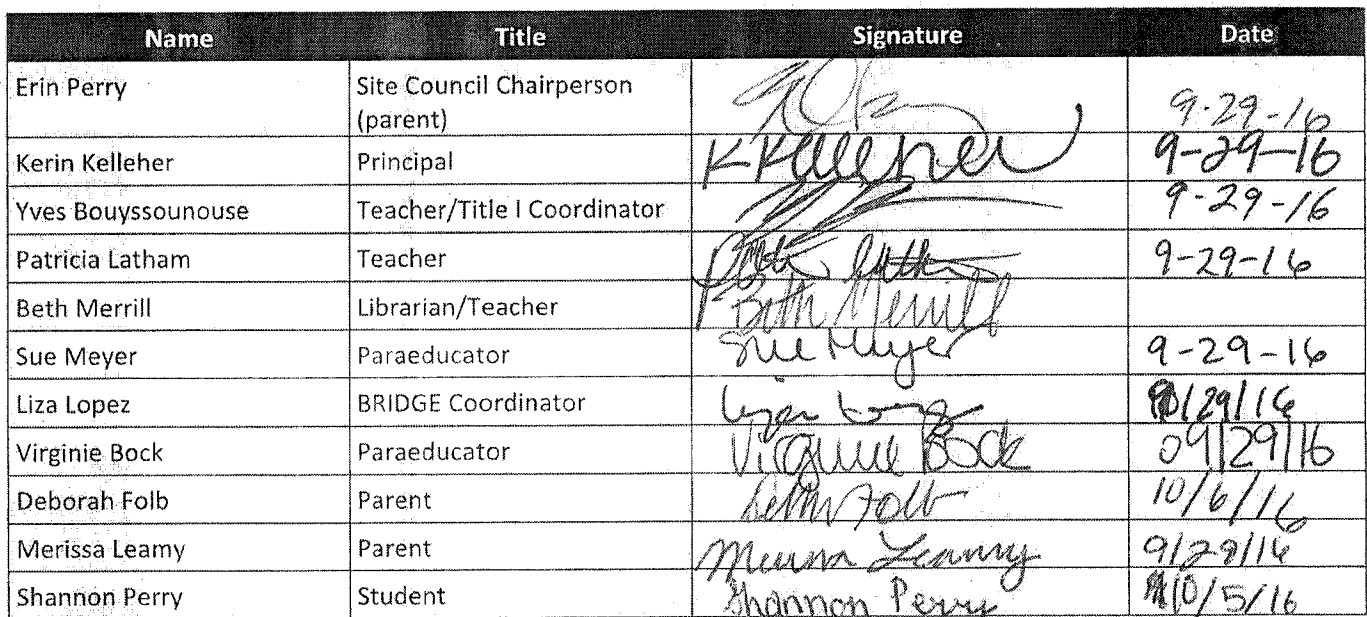 Name Title Signature Date
Erin Perry Site Council Chairperson 9-29-16
(parent)
Kerin Kelleher Principal K Kelleher 9-29-16
Yves Bouyssounouse Teacher/Title I Coordinator 9-29-16
Patricia Latham Teacher 9-29-16
Beth Merrill Librarian/Teacher Beth Merrill
Sue Meyer Paraeducator Sue Meyer 9-29-16
Liza Lopez BRIDGE Coordinator /29/16
Virginie Bock Paraeducator Virginie Bock 09/29/16
Deborah Folb Parent Folb 10/6/16
Merissa Leamy Parent Leamy 9/29/16
Shannon Perry Student Shannon Perry 10/5/16